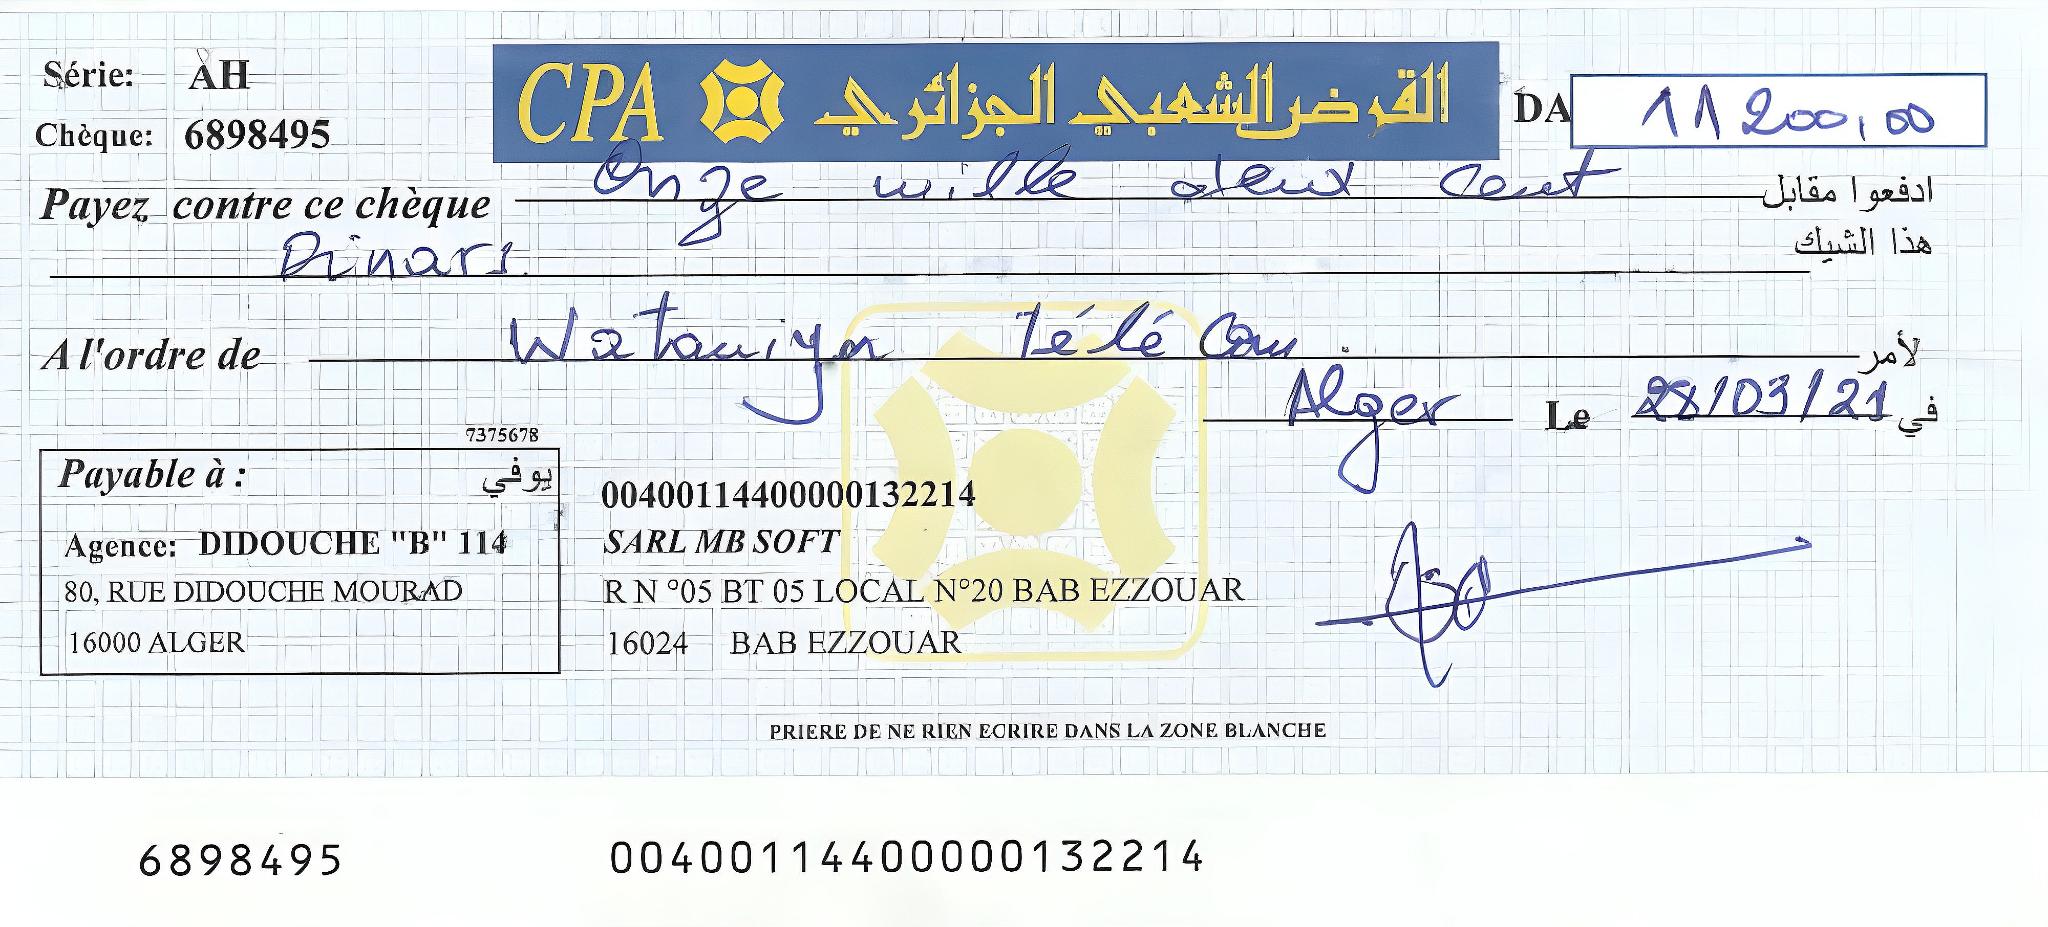 Série: AH
Chèque: 6898495
CPA القرض الشعبي الجزائري
DA 11 200,00
Payez contre ce chèque Onze mille deux cent ادفعوا مقابل
هذا الشيك
Dinars
A l'ordre de Wataniya Télécom. لأمر
Alger Le 28/03/21 في
7375678
Payable à : يوفي
Agence: DIDOUCHE "B" 114
80, RUE DIDOUCHE MOURAD
16000 ALGER
00400114400000132214
SARL MB SOFT
R N °05 BT 05 LOCAL N°20 BAB EZZOUAR
16024 BAB EZZOUAR
PRIERE DE NE RIEN ECRIRE DANS LA ZONE BLANCHE
6898495 00400114400000132214